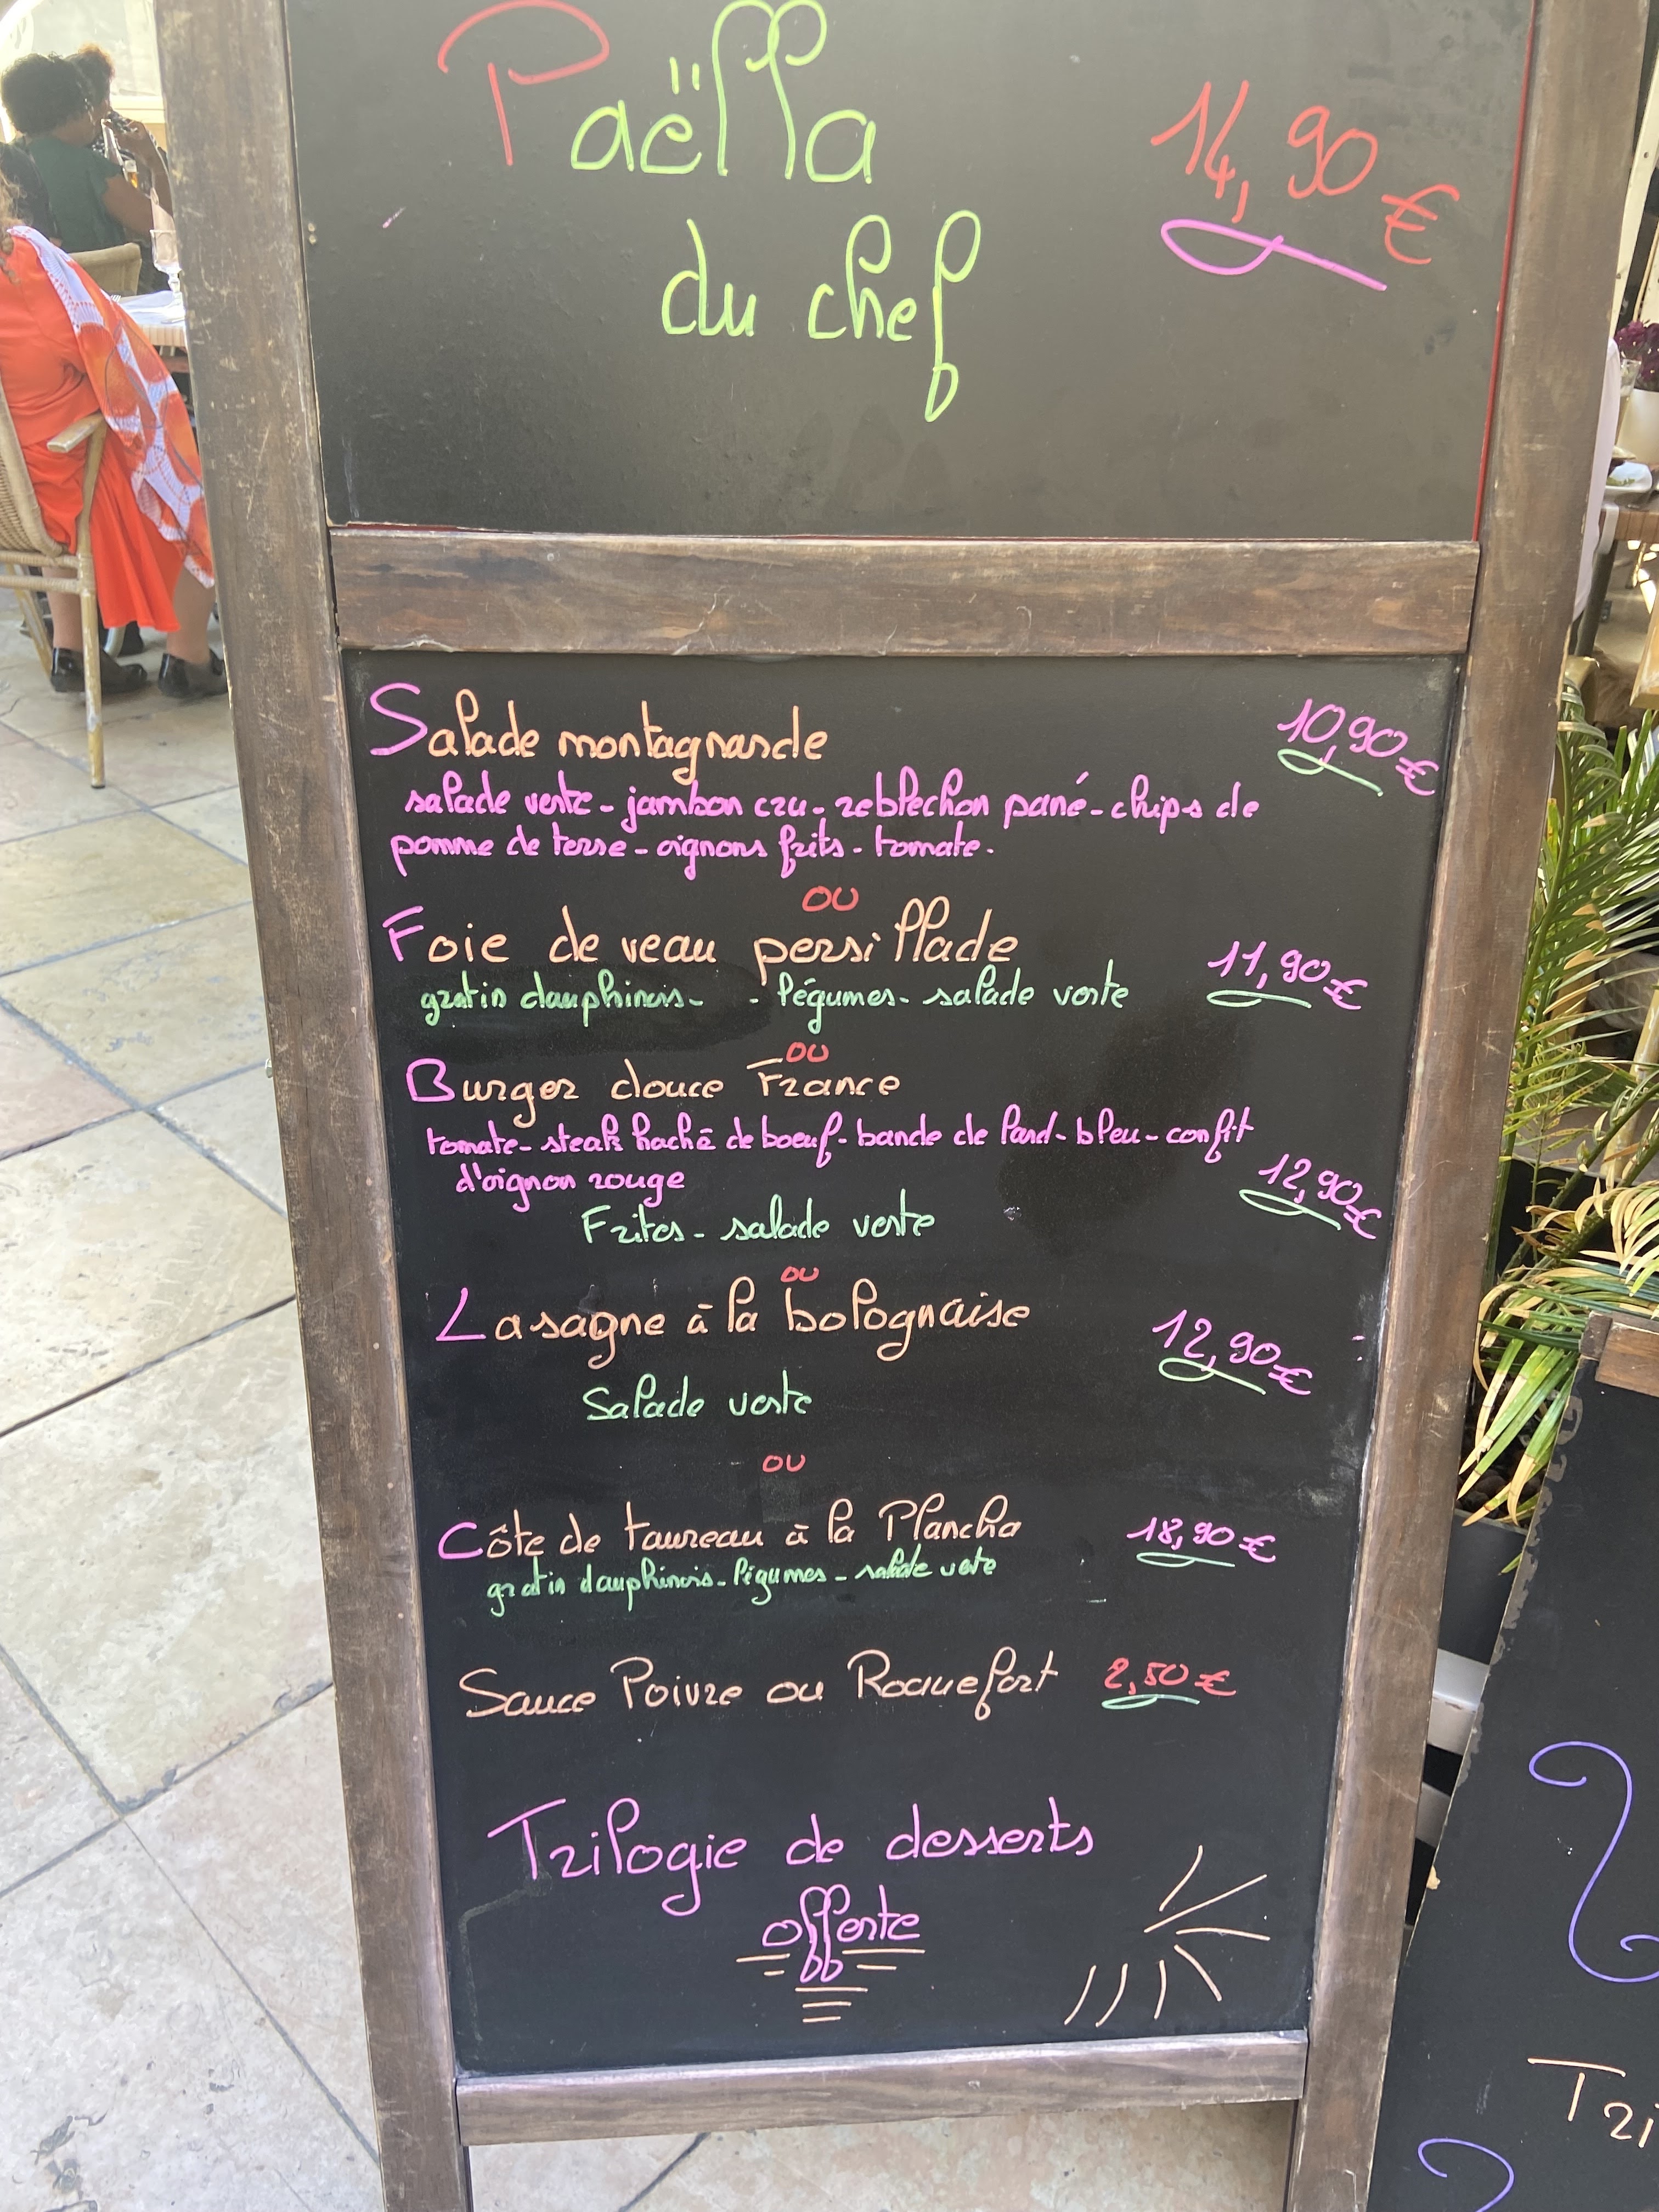 Paëlla
14,90 €
du chef
Salade montagnarde
10,90 €
salade verte - jambon cru - reblechon pané - chips de
pomme de terre - oignons frits - tomate.
OU
Foie de veau persillade
11,90 €
gratin dauphinois - - légumes - salade verte
OU
Burger douce France
tomate - steak haché de boeuf - bande de lard - bleu - confit
d'oignon rouge
12,90 €
Frites - salade verte
OU
Lasagne à la bolognaise
12,90 €
Salade verte
OU
Côte de taureau à la Plancha
18,90 €
gratin dauphinois - légumes - salade verte
Sauce Poivre ou Roquefort 2,50 €
Trilogie de desserts
offerte
Tri